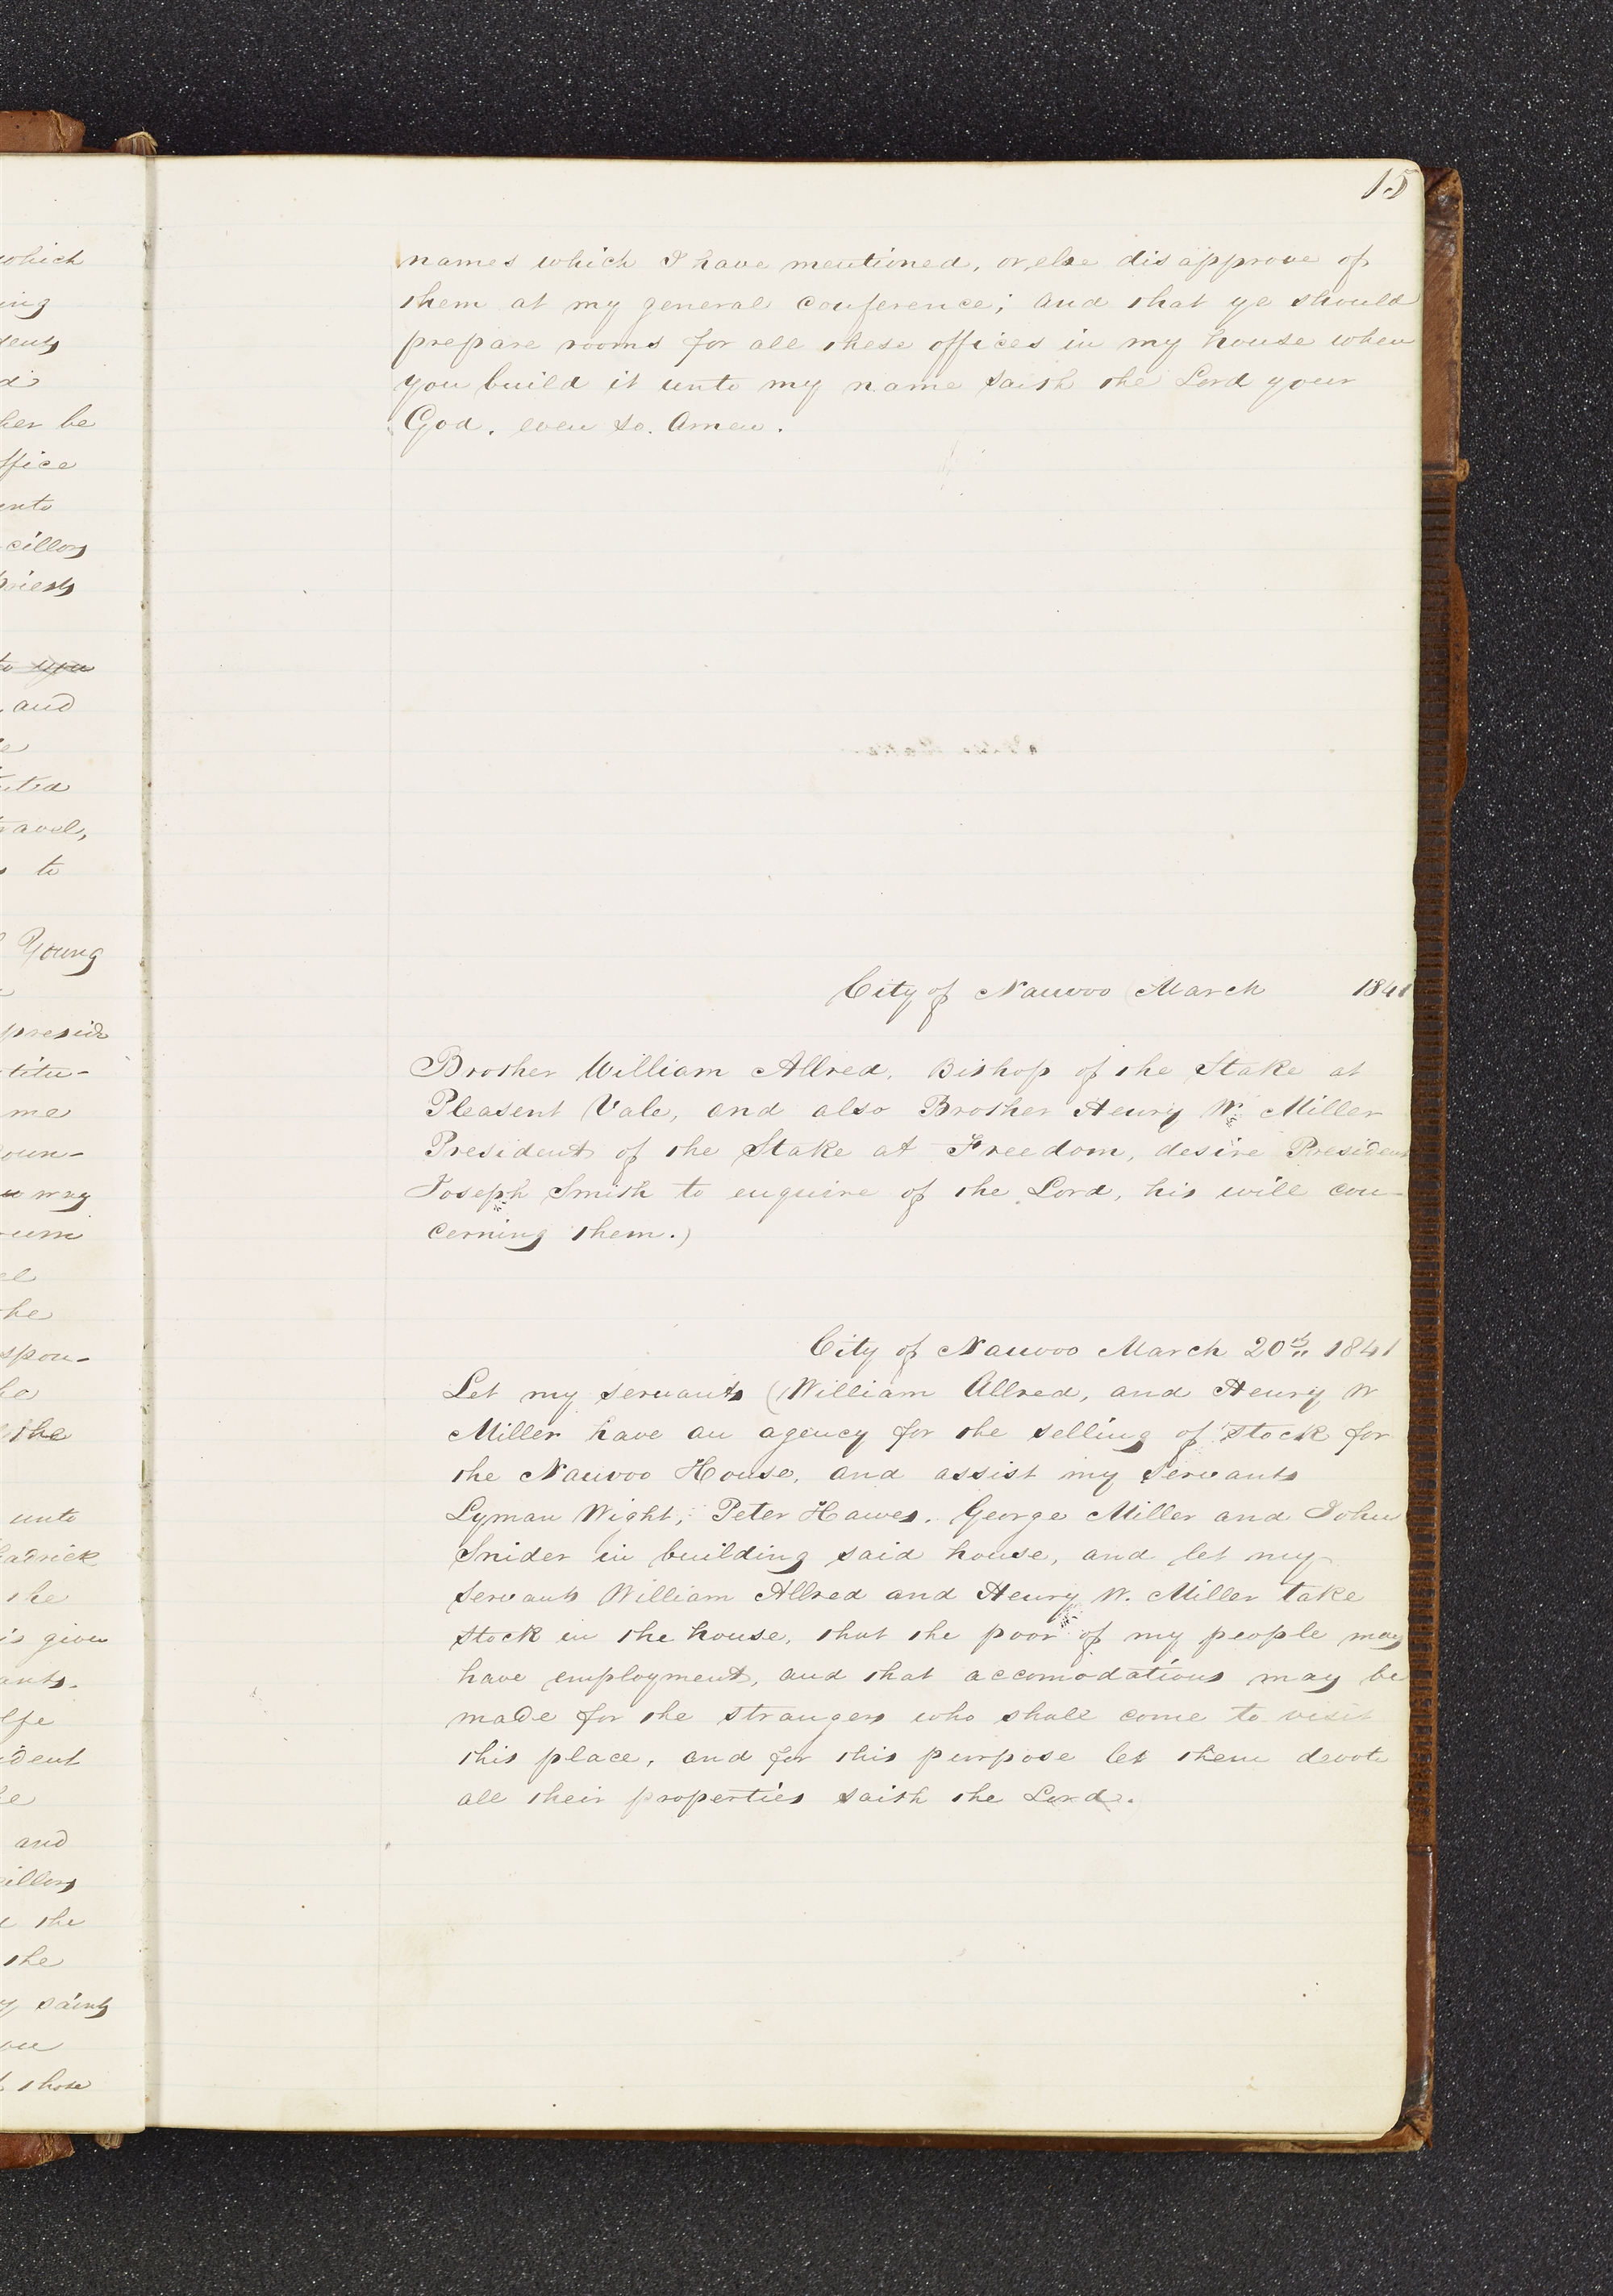 15
which
ing
dents
d
her be
ffice
unto
cillors
priests
to you
and
e
uted
travel,
s to
Young
preside
titu-
me
oun-
wray
rum
el
he
spon-
he
the
unto
hadrick
the
is given
ants.
lfe
ident
he
and
cillors
the
the
y saints
those
names which I have mentioned, or else disapprove of
them at my general conference; and that ye should
prepare rooms for all these offices in my house when
you build it unto my name saith the Lord your
God, even so. Amen.
City of Nauvoo March 1841
Brother William Allred, Bishop of the Stake at
Pleasent Vale, and also Brother Henry W. Miller
President of the Stake at Freedom, desire President
Joseph Smith to enquire of the Lord, his will con-
cerning them.)
City of Nauvoo March 20th 1841
Let my servants (William Allred, and Henry W
Miller have an agency for the selling of stock for
the Nauvoo House, and assist my Servants
Lyman Wight, Peter Hawes, George Miller and John
Snider in building said house, and let my
servants William Allred and Henry W. Miller take
stock in the house, that the poor of my people may
have employment, and that accomodations may be
made for the strangers who shall come to visit
this place, and for this purpose let them devote
all their properties saith the Lord.